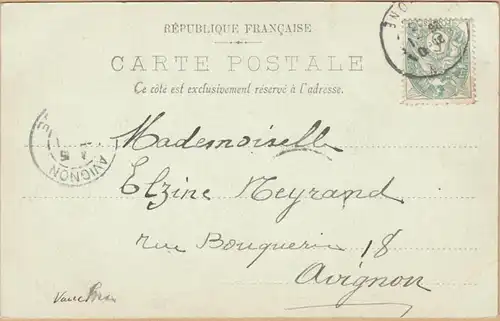 RÉPUBLIQUE FRANÇAISE
CARTE POSTALE
Ce côté est exclusivement réservé à l'adresse.
AVIGNON
Mademoiselle
Elzine Meyrand
rue Bouquerie 18
Avignon